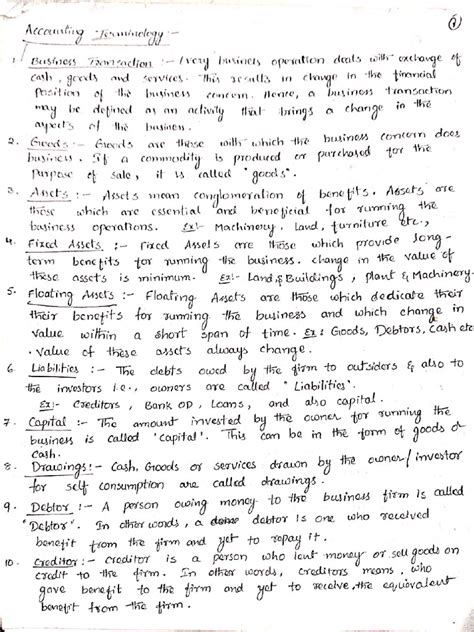 ①
Accounting Terminology :-
1. Business Transaction :- Every business operation deals with exchange of
cash, goods and services. This results in change in the financial
position of the business concern. Hence, a business transaction
may be defined as an activity that brings a change in the
aspects of the business.
2. Goods :- Goods are those with which the business concern does
business. If a commodity is produced or purchased for the
purpose of sale, it is called "goods".
3. Assets :- Assets mean conglomeration of benefits. Assets are
those which are essential and beneficial for running the
business operations. Ex:- Machinery, Land, furniture etc.,
4. Fixed Assets :- Fixed Assets are those which provide long-
term benefits for running the business. change in the value of
these assets is minimum. Ex:- Land & Buildings, Plant & Machinery.
5. Floating Assets :- Floating Assets are those which dedicate their
their benefits for running the business and which change in
value within a short span of time. Ex: Goods, Debtors, Cash etc
. value of these assets always change.
6. Liabilities :- The debts owed by the firm to outsiders & also to
the investors i.e., owners are called "Liabilities".
Ex:- Creditors, Bank OD, Loans, and also capital.
7. Capital :- The amount invested by the owner for running the
business is called 'capital'. This can be in the form of goods or
cash.
8. Drawings :- Cash, Goods or services drawn by the owner/investor
for self consumption are called drawings.
9. Debtor :- A person owing money to the business firm is called
"Debtor". In other words, a debtor is one who received
benefit from the firm and yet to repay it.
10. Creditor :- Creditor is a person who lent money or sell goods on
credit to the firm. In other words, creditors means, who
gave benefit to the firm and yet to receive the equivalent
benefit from the firm.